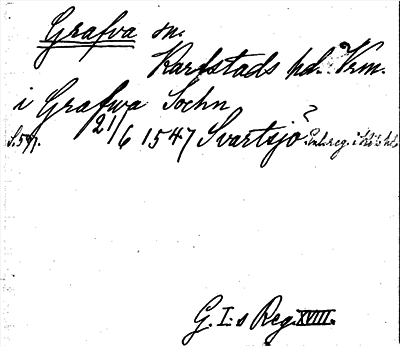 Grafva sn.
Karlstads hd. Vrm.
i Grafwa Sochn
S.577. 21/6 1547 Svartsjö?
G. I:s Reg. XVIII.